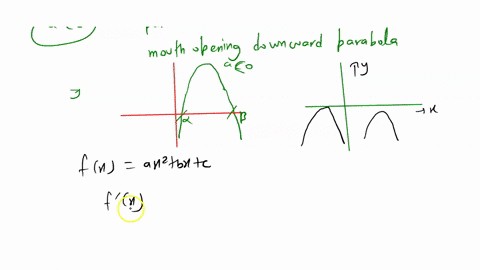 mouth opening downward parabola
a<0
y
α
β
↑y
→ x
f(x) = ax²+bx+c
f'(x)